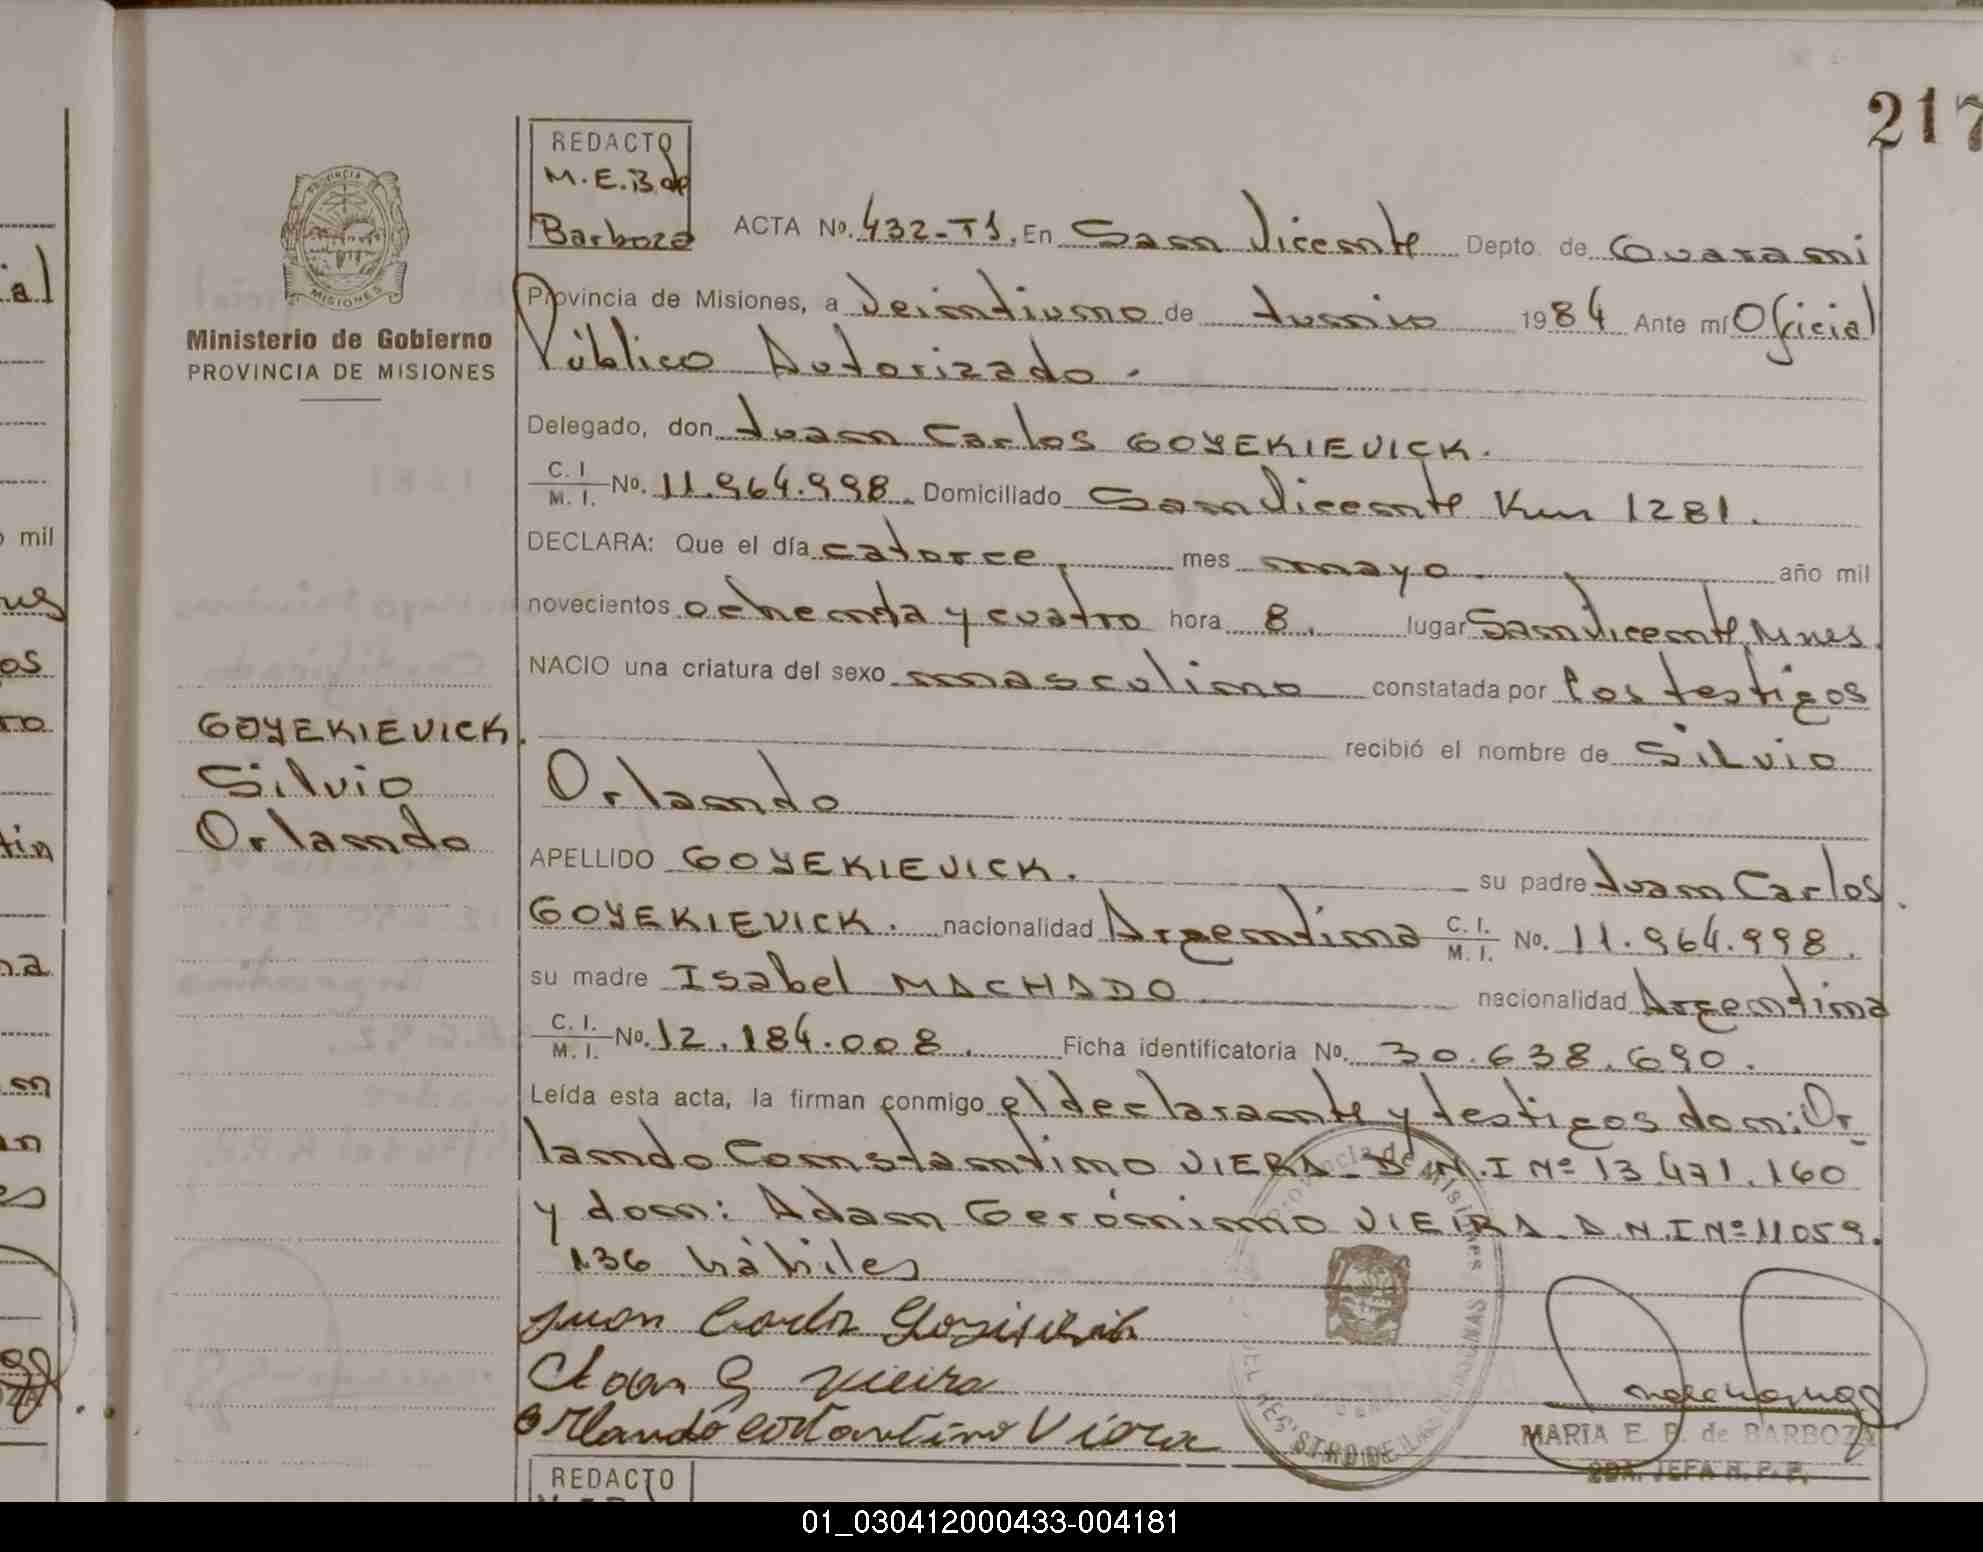 217
REDACTO
M.E.B. de
Barboza
PROVINCIA
MISIONES
Ministerio de Gobierno
PROVINCIA DE MISIONES
ACTA No. 432-T1. En San Vicente Depto. de Guarani
Provincia de Misiones, a Veintiuno de Junio 1984 Ante mí Oficial
Público Autorizado.
Delegado, don Juan Carlos GOYEKIEVICK.
C. I. / M. I. No. 11.964.998. Domiciliado San Vicente Km 1281.
DECLARA: Que el día catorce mes mayo año mil
novecientos ochenta y cuatro hora 8. lugar San Vicente Mnes.
NACIO una criatura del sexo masculino constatada por los testigos
recibió el nombre de Silvio
Orlando
GOYEKIEVICK.
Silvio
Orlando
APELLIDO GOYEKIEVICK. su padre Juan Carlos
GOYEKIEVICK. nacionalidad Argentina C. I. / M. I. No. 11.964.998.
su madre Isabel MACHADO nacionalidad Argentina
C. I. / M. I. No. 12.184.008. Ficha identificatoria No. 30.638.690.
Leída esta acta, la firman conmigo el declarante y testigos don: Or_
lando Constantino VIERA_ D.N.I Nº 13.471.160
y don: Adan Gerónimo VIEIRA_ D.N.I Nº 11059.
136 hábiles
Juan Carlos
G Vieira
Orlando Viera
MARIA E. B. de BARBOZA
2DA. JEFA R. P. P.
REDACTO
01_030412000433-004181